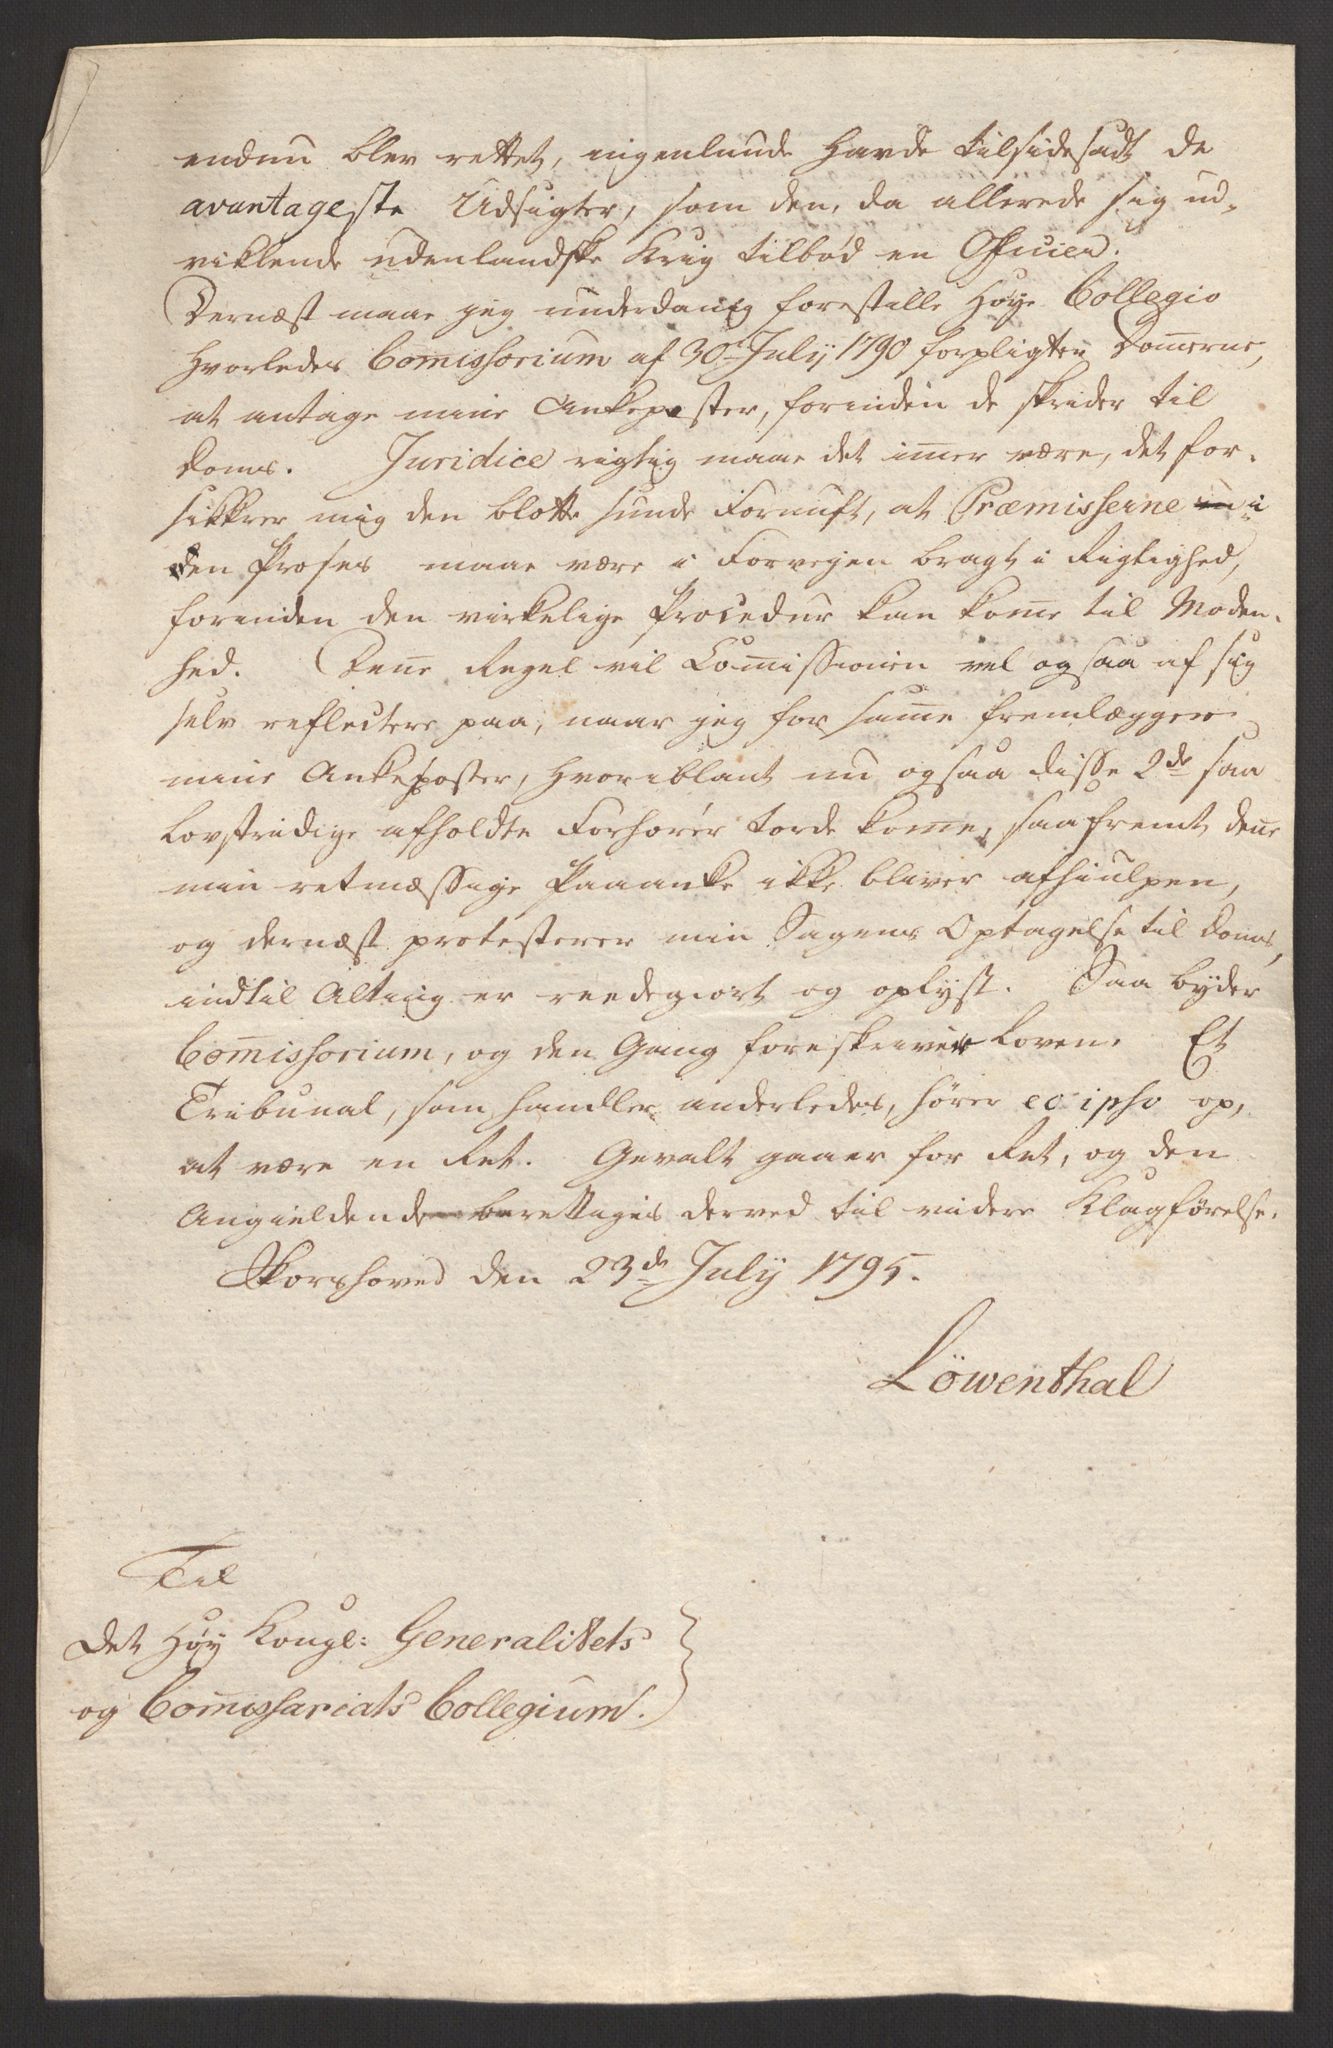 endnu blev rettet, ingenlunde havde tilsidesadt de
avantageste Udsigter, som den, da allerede sig ud-
viklende udenlandske Krig tilbød en Officier.
Dernæst maae jeg underdanig forestille Høye Collegio
hvorledes Com̅issorium af 30t July 1790 forpligter Dom̅erne,
at antage mine Ankeposter, forinden de skrider til
Doms. Juridice rigtig maae det im̅er være, det for-
sikkrer mig den blotte sunde Fornuft, at Præmisserne i
den Proses maae være i Forvejen bragt i Rigtighed,
forinden den virkelige Procedur kan kom̅e til Moden-
hed. Den̅e Regel vil Com̅issionen vel ogsaa af sig
selv reflectere paa, naar jeg for sam̅e fremlægger
mine Ankeposter, hvoriblant nu ogsaa disse 2de saa
lovstridige afholdte Forhører torde kom̅e, saafremt den̅e
min retmæssige Paaanke ikke bliver afhiulpen,
og dernæst protesterer min Sagens Optagelse til Doms,
indtil Alting er reedegiort og oplyst. Saa byder
Com̅issorium, og den Gang foreskriver Loven. Et
Tribunal, som handler anderledes, hører eo ipso op,
at være en Ret. Gevalt gaaer for Ret, og den
Angieldende berettiges derved til videre Klagførelse.
Korshoved den 23de July 1795.
Löwenthal
Til
Det Høy Kongl: Generalitets
og Com̅issariats Collegium.